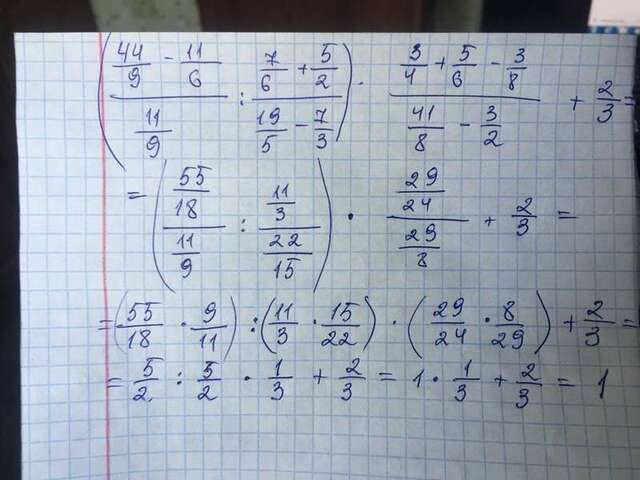 ((44/9 - 11/6)/(11/9) : (7/6 + 5/2)/(19/5 - 7/3)) · (3/4 + 5/6 - 3/8)/(41/8 - 3/2) + 2/3 =
= ((55/18)/(11/9) : (11/3)/(22/15)) · (29/24)/(29/8) + 2/3 =
= (55/18 · 9/11) : (11/3 · 15/22) · (29/24 · 8/29) + 2/3 =
= 5/2 : 5/2 · 1/3 + 2/3 = 1 · 1/3 + 2/3 = 1